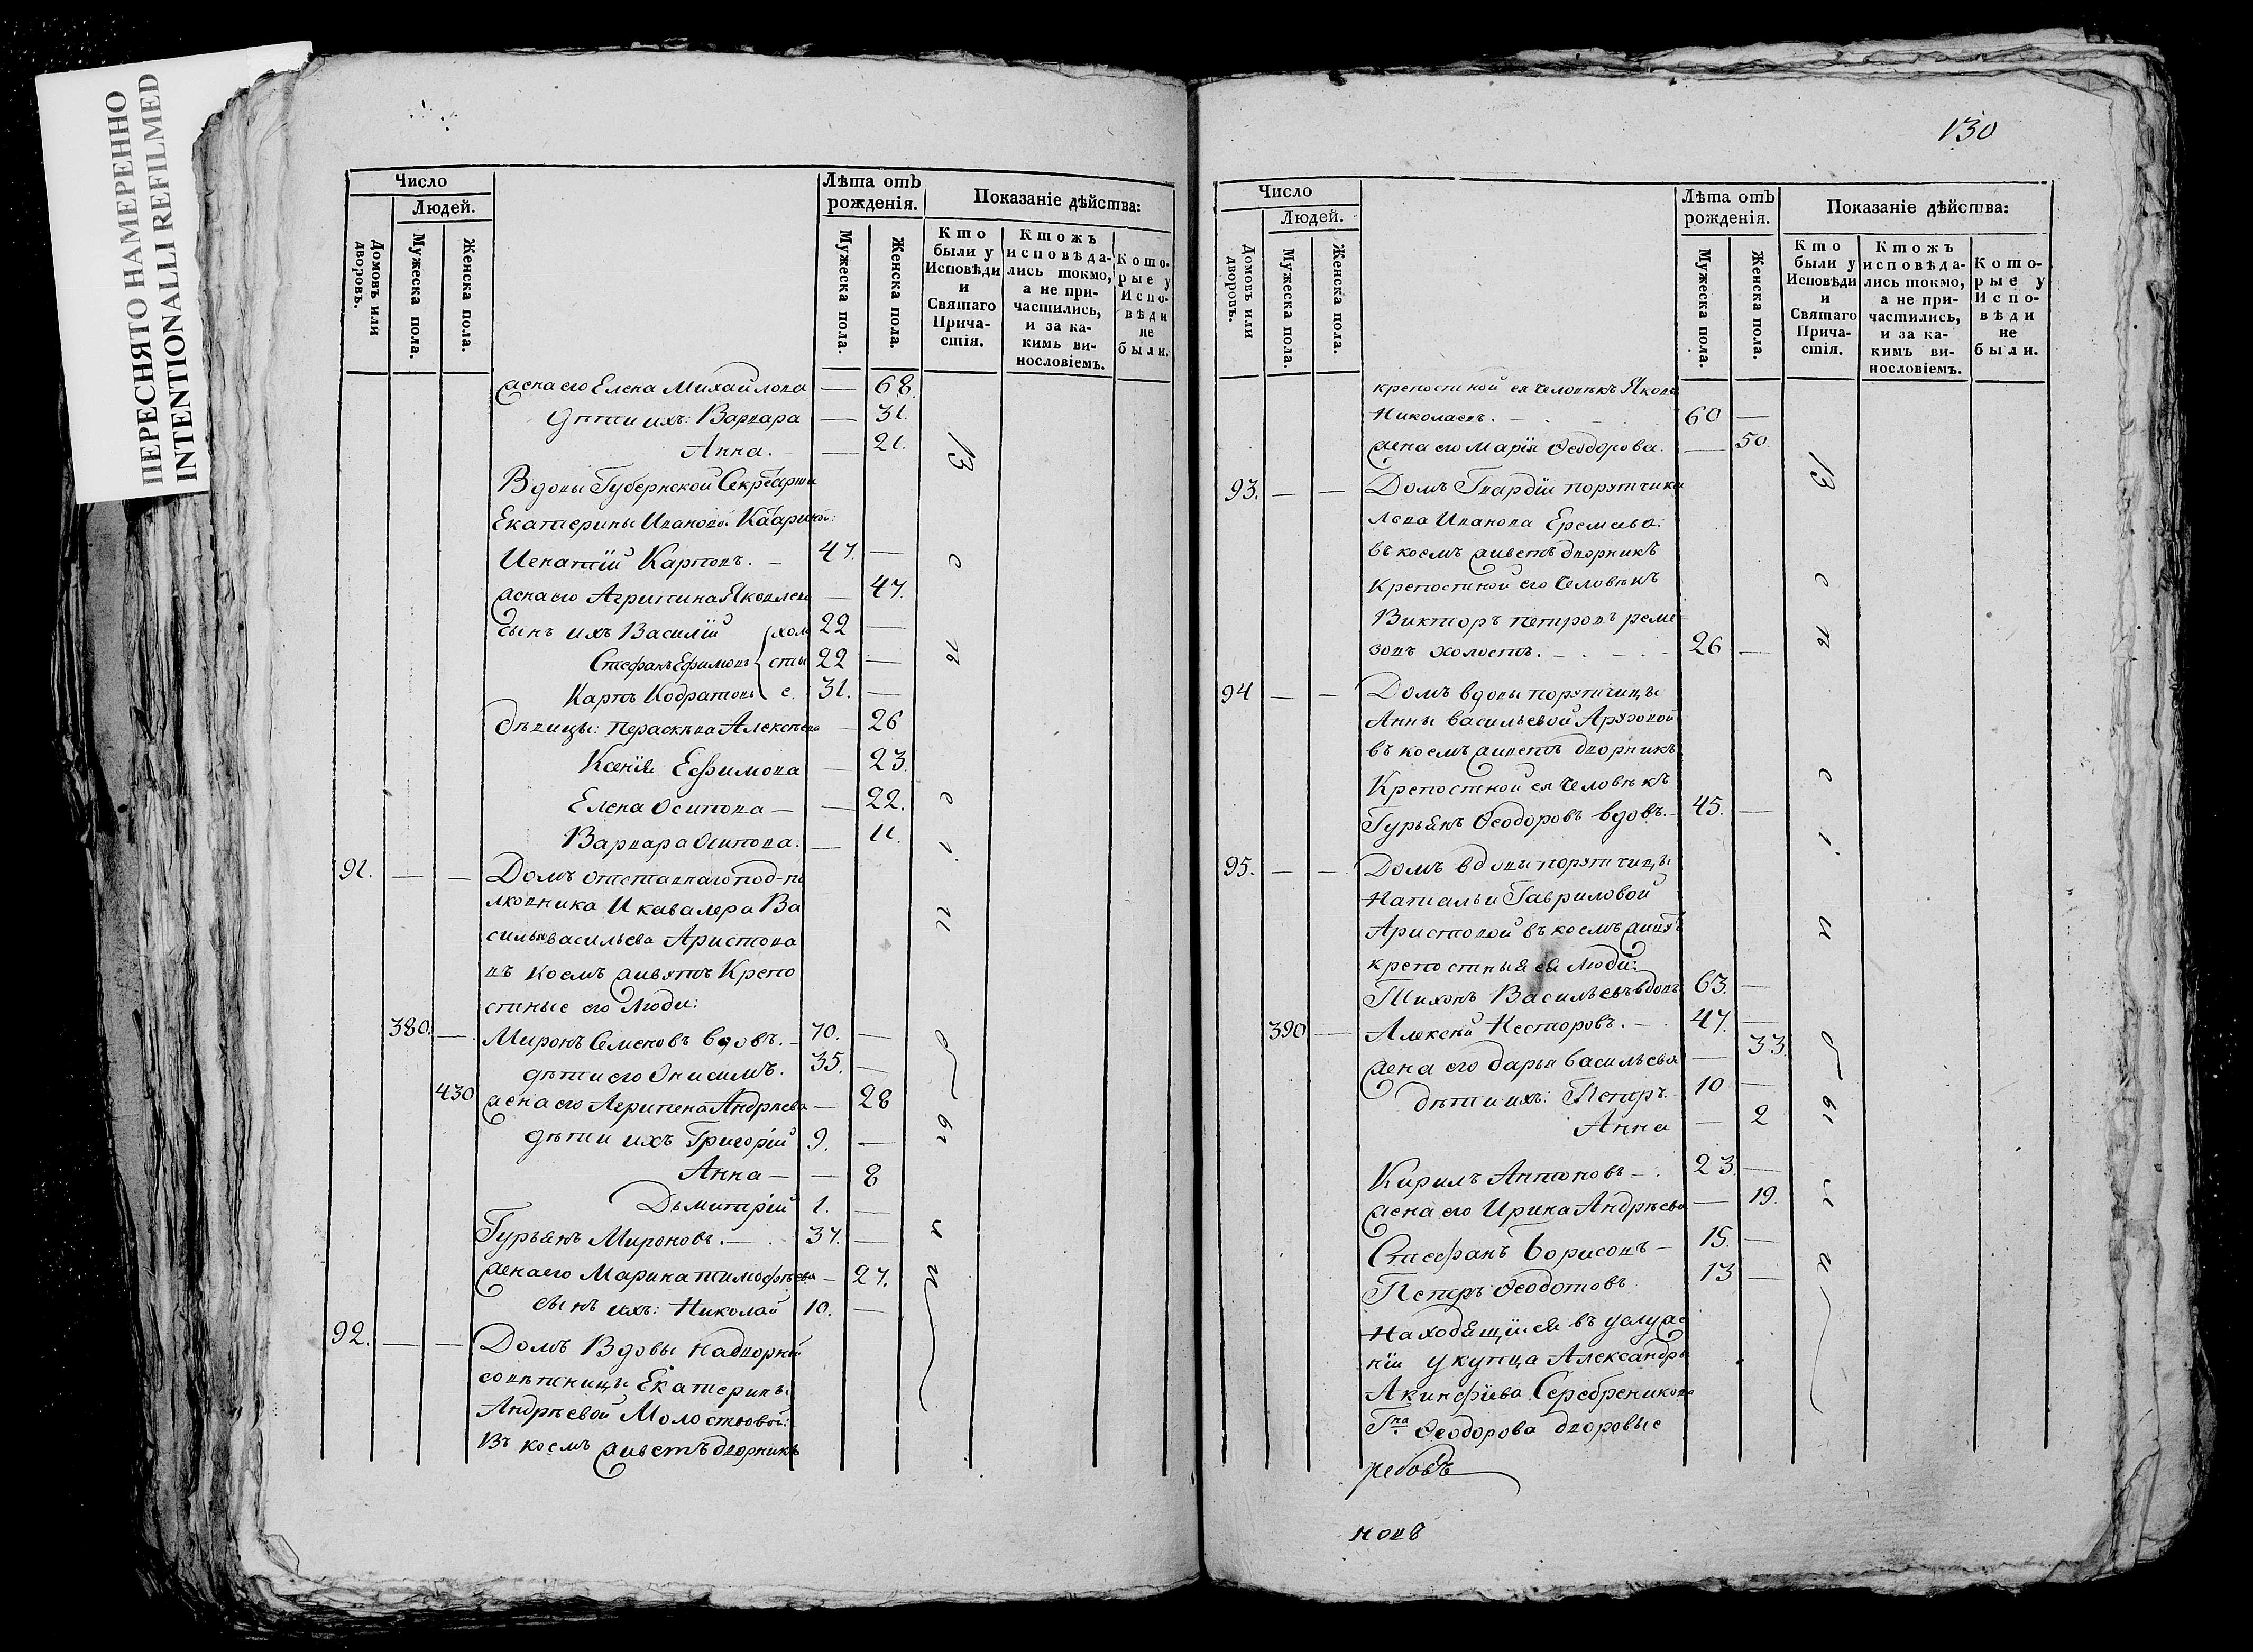 ПЕРЕСНЯТО НАМЕРЕННО
INTENTIONALLI REFILMED
Число
Людей.
Домовъ или дворовъ.
Мужеска пола.
Женска пола.
Лѣта отъ рожденія.
Мужеска пола.
Женска пола.
Показаніе дѣйства:
Кто были у Исповѣди и Святаго Прича-стія.
Ктожъ исповѣда-лись токмо, а не при-частились, и за ка-кимъ ви-нословіемъ.
Кото-рые у Испо-вѣди не были.
жена его Елена Михайлова — 68.
дѣти ихъ: Варвара — 31.
Анна. — 21.
Вдовы Губернской Секретарши
Екатерины Ивановой
Игнатій Карповъ. — 47. —
жена его Агрипина Яковлева — 47.
сынъ ихъ Василій (холо 22 —
Стефанъ Ефимовъ { сты 22 —
Карпъ Кодратовъ ( е. 31. —
дѣвицы: Пераскѣва Алексѣева — 26
Ксенія Ефимова — 23.
Елена Осипова — — 22.
Варвара Осипова. — 11.
91. — — Домъ отставнаго под-по
лковника и кавалера Ва
силья васильева Аристова
въ коемъ живутъ Крепо
стные его люди:
380. — Миронъ Семеновъ вдовъ. — 70. —
дѣти его Онисимъ. 35. —
430 жена его Агрипена Андрѣева — 28
дѣти ихъ Григорій 9. —
Анна — — 8
Дьмитрій 1. —
Гурьянъ Мироновъ. — 37. —
жена его Марина тимофѣева — 27.
сынъ ихъ: Николай 10. —
92. — — Домъ Вдовы надворной
совѣтницы Екатерины
Андрѣевой Молоствовой:
Въ коемъ живетъ дворникъ
В
с
ѣ
с
і
и
б
ы
л
и
130
Число
Людей.
Домовъ или дворовъ.
Мужеска пола.
Женска пола.
Лѣта отъ рожденія.
Мужеска пола.
Женска пола.
Показаніе дѣйства:
Кто были у Исповѣди и Святаго Прича-стія.
Ктожъ исповѣда-лись токмо, а не при-частились, и за ка-кимъ ви-нословіемъ.
Кото-рые у Испо-вѣди не были.
крепостной ея человѣкъ Яковъ
Николаевъ. — 60 —
жена его Марія Ѳеодорова. — 50.
93. — — Домъ Гвардіи порутчика
Льва Иванова Еремѣева:
въ коемъ живетъ дворникъ
Крепостной его человѣкъ
Викторъ петровъ реме
зовъ холостъ. — 26 —
94 — — Домъ вдовы порутчицы
Анны васильевой Арузовой
въ коемъ живетъ дворникъ
Крепостной ея человѣкъ
Гурьянъ Ѳеодоровъ вдовъ. — 45. —
95. — — Домъ вдовы порутчицы
Натальи Гавриловой
Аристовой въ коемъ живутъ
крепостныя ея люди:
Тихонъ Васильевъ вдовъ 63. —
390 — Алексѣй Несторовъ. — 47. —
жена его дарья васильева — 33.
дѣти ихъ: Петръ. 10 —
Анна — 2
Кирилъ Антоновъ — 23. —
жена его Ирина Андрѣева — 19.
Стефанъ борисовъ — 15. —
Петръ Ѳеодотовъ 13 —
Находящійся въ услуже
ніи у купца Александра
Акинфіева Серебреникова
Гна Ѳеодорова дворовые
В
с
ѣ
с
і
и
б
ы
л
и